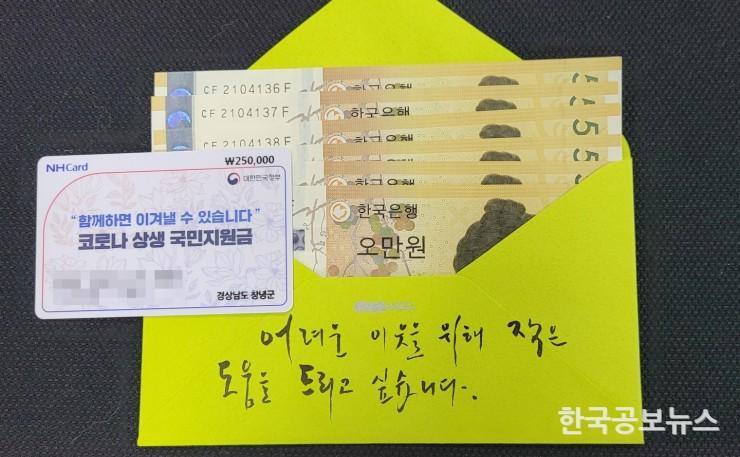 CF 2104136 F
한국은행
CF 2104137 F
한국은행
5
CF 2104138 F
한국은행
5
한국은행
5
한국은행
오만원
NHCard
₩250,000
대한민국정부
"함께하면 이겨낼 수 있습니다"
코로나 상생 국민지원금
경상남도 창녕군
어려운 이웃을 위해 작은
도움을 드리고 싶습니다.
한국공보뉴스